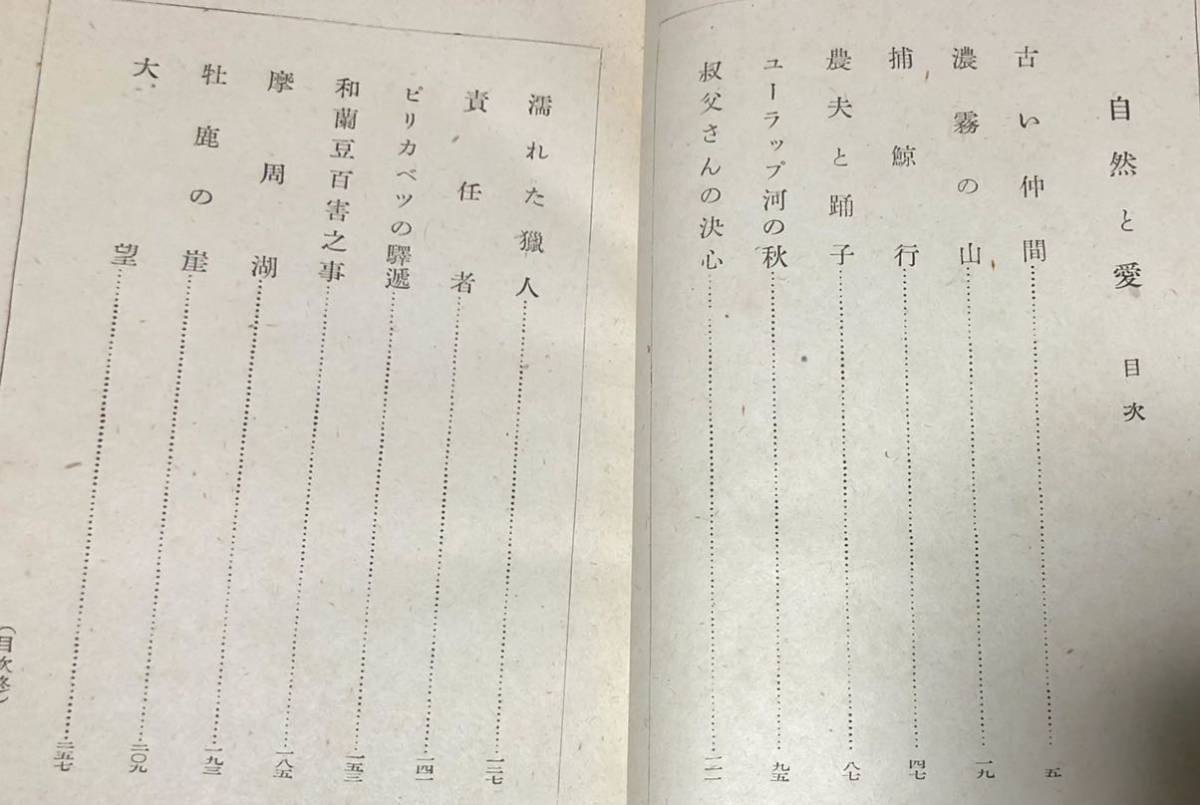 自然と愛 目次
古い仲間……五
濃霧の山……一九
捕鯨行……四七
農夫と踊子……八七
ユーラップ河の秋……九五
叔父さんの決心……一一一
濡れた獵人……一二七
責任者……一四一
ピリカベツの驛遞……一五三
和蘭豆百害之事……一八五
摩周湖……一九三
牡鹿の崖……二〇九
大望……二五七
(目次終)